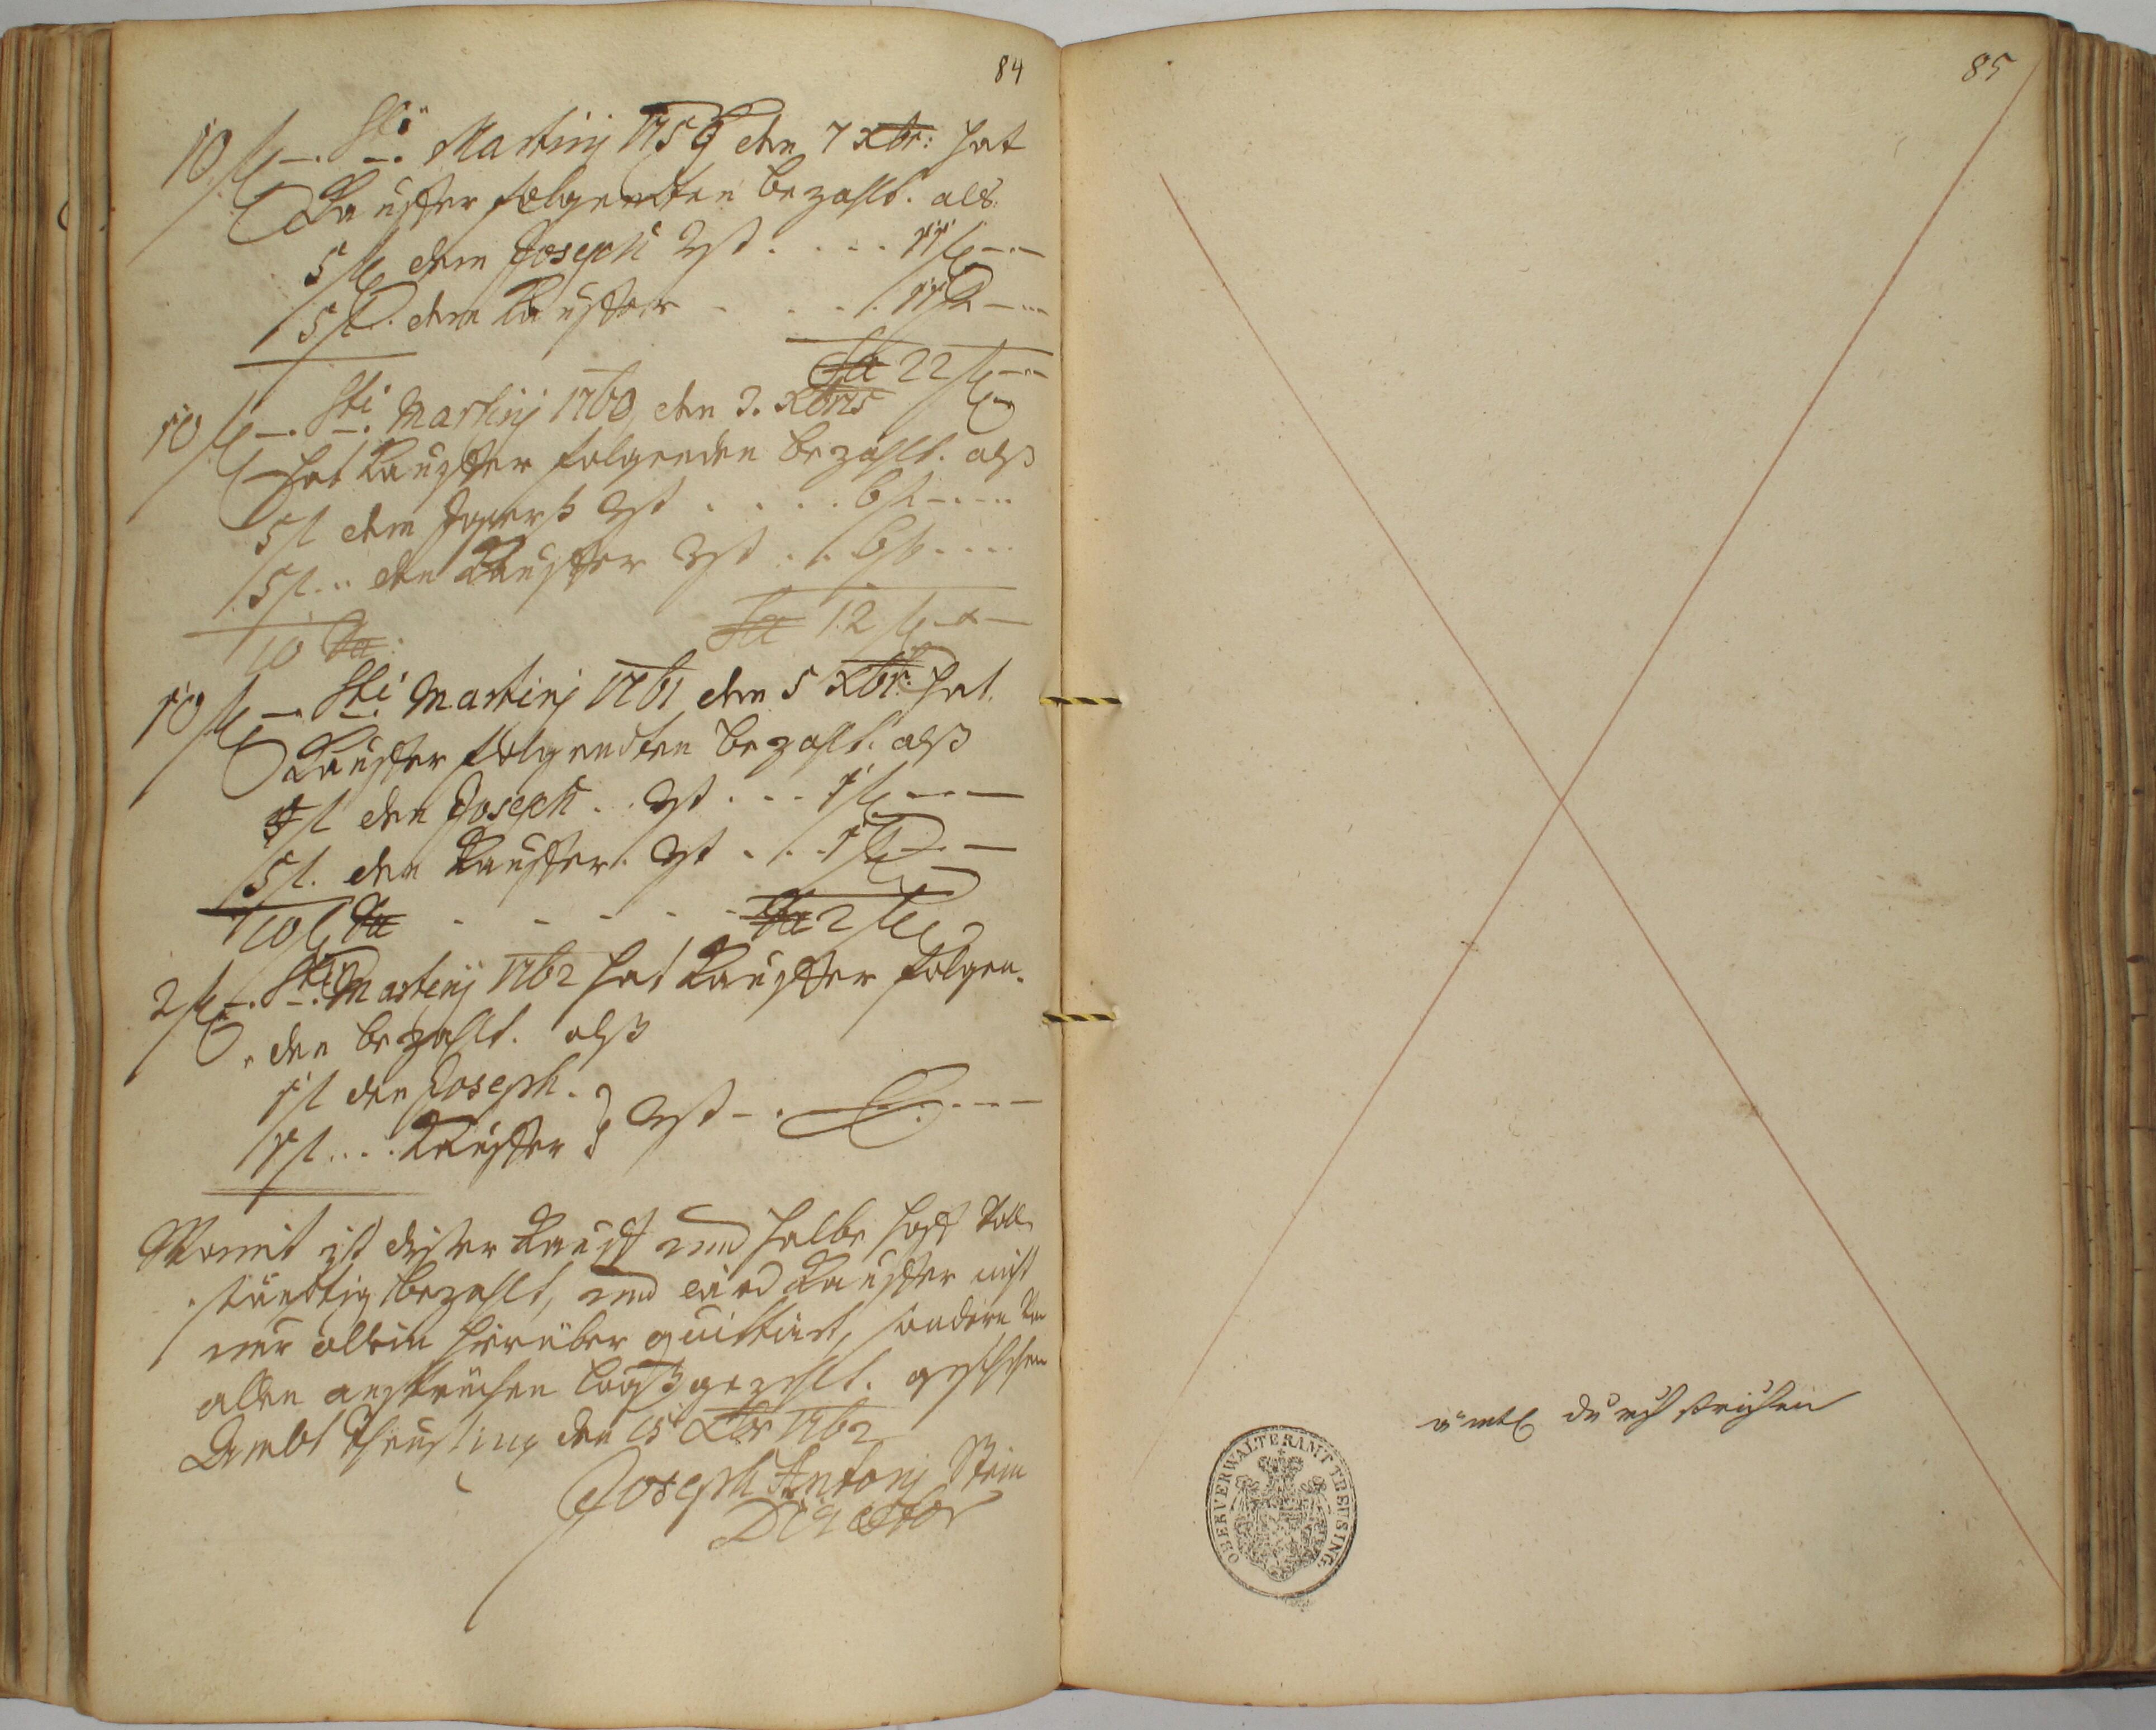 84
10 fl –. Sti Martinj 1759 den 7 Xbr: hat
Kauffer folgendten bezahlt. als.
5 fl dem Joseph rst . . . . 11 fl – –
5 fl. dem Kauffer . . . . 11 fl – –
Sa 22 fl – –
10 fl –. Sti Martinj 1760 den 3. Xbris
hat Kauffer folgenden bezahlt. alß
5 fl dem Joseph rst . . . . 6 fl – . – . .
5 fl .. den Kauffer rst . . 6 fl . . . .
10 Sa: Sa 12 fl – x –
10 fl – Sti Martinj 1761 den 5 Xbr: hat.
Kauffer folgendten bezahlt. alß
5 fl den Joseph . . rst . . . 1 fl – – –
5 fl. den Kauffer. rst . . . 1 fl – . –
10 fl Sa . – – – – Sa 2 fl
2 fl –. Sti Martinj 1762 hat Kauffer folgen-
den bezahlt. alß
1 fl den Joseph .
1 fl . . . . Kauffer } rst – . – – – –
Womit ist dißer Kauff und halbe Hoff voll-
ständtig bezahlt, und wird Kauffer nicht
nur allein hierüber quittiert, sondern von
allen ansprüchen loßgezehlt. geschehen
Ambt Theusing den 15 Xbr 1762
Joseph Antonj Stein
Director
85
ämtl durchstrichen
OBERVERWALTERAMT THEUSING